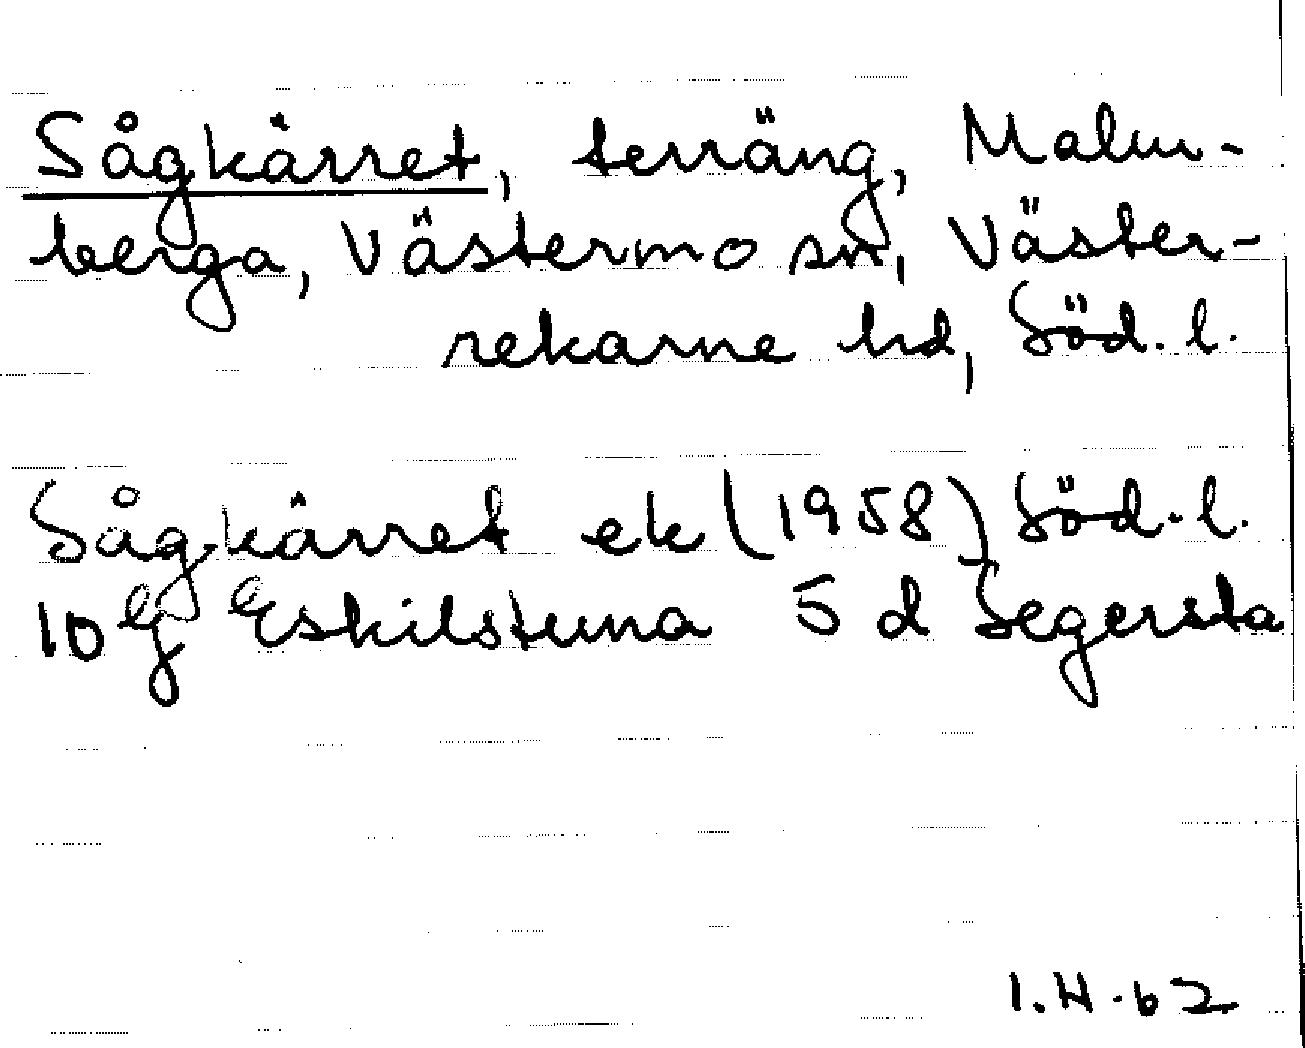 Sågkärret, terräng, Malm-
berga, Västermo sn, Väster-
rekarne hd, Söd. l.
Sågkärret ek (1958) Söd. l.
10 G Eskilstuna 5 d Segersta
I.H-62